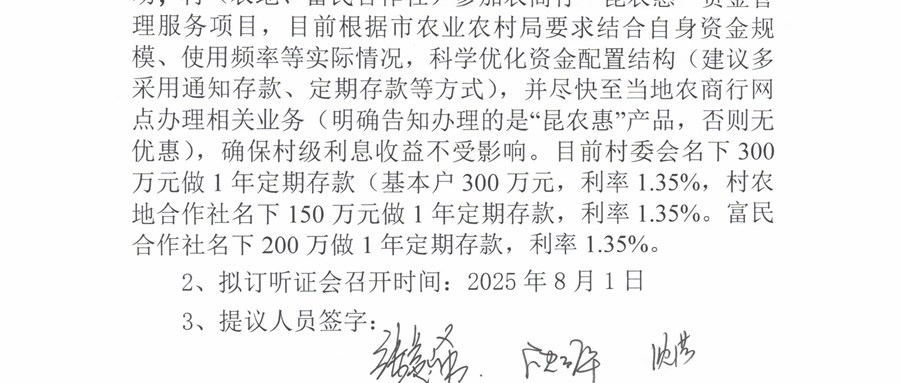 动，村（农地、富民合作社）参加农商行“昆农惠”资金管
理服务项目，目前根据市农业农村局要求结合自身资金规
模、使用频率等实际情况，科学优化资金配置结构（建议多
采用通知存款、定期存款等方式），并尽快至当地农商行网
点办理相关业务（明确告知办理的是“昆农惠”产品，否则无
优惠），确保村级利息收益不受影响。目前村委会名下 300
万元做 1 年定期存款（基本户 300 万元，利率 1.35%，村农
地合作社名下 150 万元做 1 年定期存款，利率 1.35%。富民
合作社名下 200 万做 1 年定期存款，利率 1.35%。
2、拟订听证会召开时间：2025 年 8 月 1 日
3、提议人员签字：